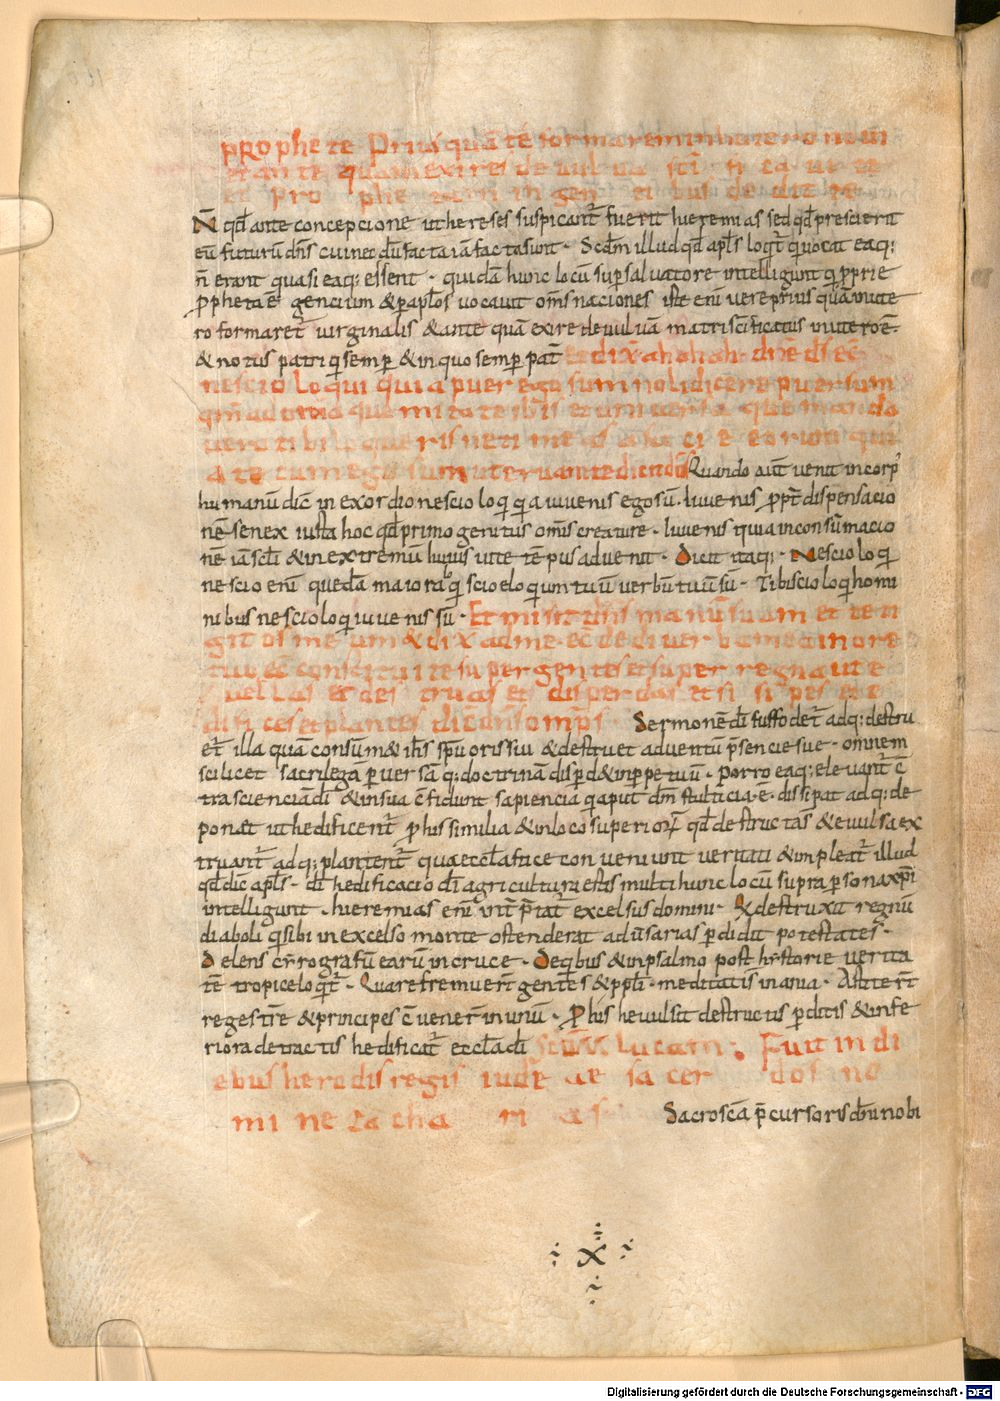 prophete Priusquā te formarem in utero noui
et ante quam exires de uulua scī fi ca ui te
et pro phe tam in gen ti bus de di te
N̄ qđ ante concepcione ut hereses suspicant̄ fuerit hieremias sed qđ prescierit
eū futurū dn̄s cui nec dū facta iā facta sunt · Scđm illud qđ apl̄s loqt̄ qui uocat ea q:
n̄ erant quasi ea q: essent · quidā hunc locū sup saluatore intelligunt q̇ p̱prie
p̱pheta ē gencium & p̱ apl̄os uocauit om̄s naciones iste eni uere prius quā in ute
ro formaret̄ uirginalis & ante quā exire de uuluā matris sc̄ificatus in utero ē·
& notus patri q̇ semp̱ & in quo semp̱ pat̄ Et dix̄ a h a h a h · dn̄e ds̄ ecc̄
nescio loqui quia puer ego sum noli dicere puer sum
qm̄ ad omia que mitta te ibis et uniuersa que manda
uero tibi loqueris ne timeas a fa ci e eorum qui
a te cum ego sum ut eruam te dicit dn̄s Quando aut̄ uenit in corp̱
humanū dic̄ in exordio nescio loq̇ q̇a iuuenis ego sū · Iuuenis p̱pt̄ dispensacio
nē· senex iuxta hoc qđ primogenitus om̄is creature · Iuuenis quia in consūmacio
nē iā scl̄i & in extremū huius uite tēpus aduenit · Dicit itaq: · Nescio loq̇
nescio enī quedā maiora q̇ scio eloq̇um tuū uerbū tuū sū · Tibi scio loq̇ homi
nibus nescio loq̇ iuuenis sū · Et misit dn̄s manū suam et teti
git os meum & dix̄ ad me· ecc̄ dedi uerba mea in ore
tuo ecc̄ constitui te super gentes et super regna ut e
uellas et des truas et disperdas et dis si pes et e
difices et plantes dic̄ dn̄s om̄ps · Sermonē dī suffodet̄ adq: destru
et̄ illa quā consūm& ih̄s spū oris sui & destruet aduentū p̄sencie sue · omnem
scilicet sacrilegā p̱uersā q: doctrinā disp̱d& in p̱petuū · porro ea q: eleuant̄ c̄
tra scienciā dī & in sua c̄fidunt sapiencia q̇ aput dm̄ stulticia· ē· dissipat adq: de
pon&t ut hedificent̄ p̱ his similia & in loco superior̄ qđ destructas & euulsa ex
truant̄ adq: plantent̄ qua eccl̄asticē conueniunt ueritati & impleat̄ illud
qđ dic̄ apl̄s · dī hedificacio dī agricultura estis multi hunc locū supra persona xp̄i
intelligunt · hieremias enī int̄p̄tat̄ excelsus domini · Et destruxit regnū
diaboli q̇ sibi in excelso monte ostenderat aduersarias p̱didit potestates ·
Delens cyrografū earū in cruce · De quibus & in psalmo post hystorie uerita
tē tropice loq̇t̄ · Quare fremuer̄t gentes & ppl̄i · meditati s̄ inania · Astiter̄t
reges tr̄e & principes c̄uener̄ in unū · P his heuulsit destructis p̱ditis & infe
riora detractis hedificat̄ eccl̄a dī Scdm Lucam · Fuit in di
ebus herodis regis iude ae sa cer dos no
mi ne zacha ri as Sacroscā p̄cursoris dn̄i nobi
x
Digitalisierung gefördert durch die Deutsche Forschungsgemeinschaft - DFG